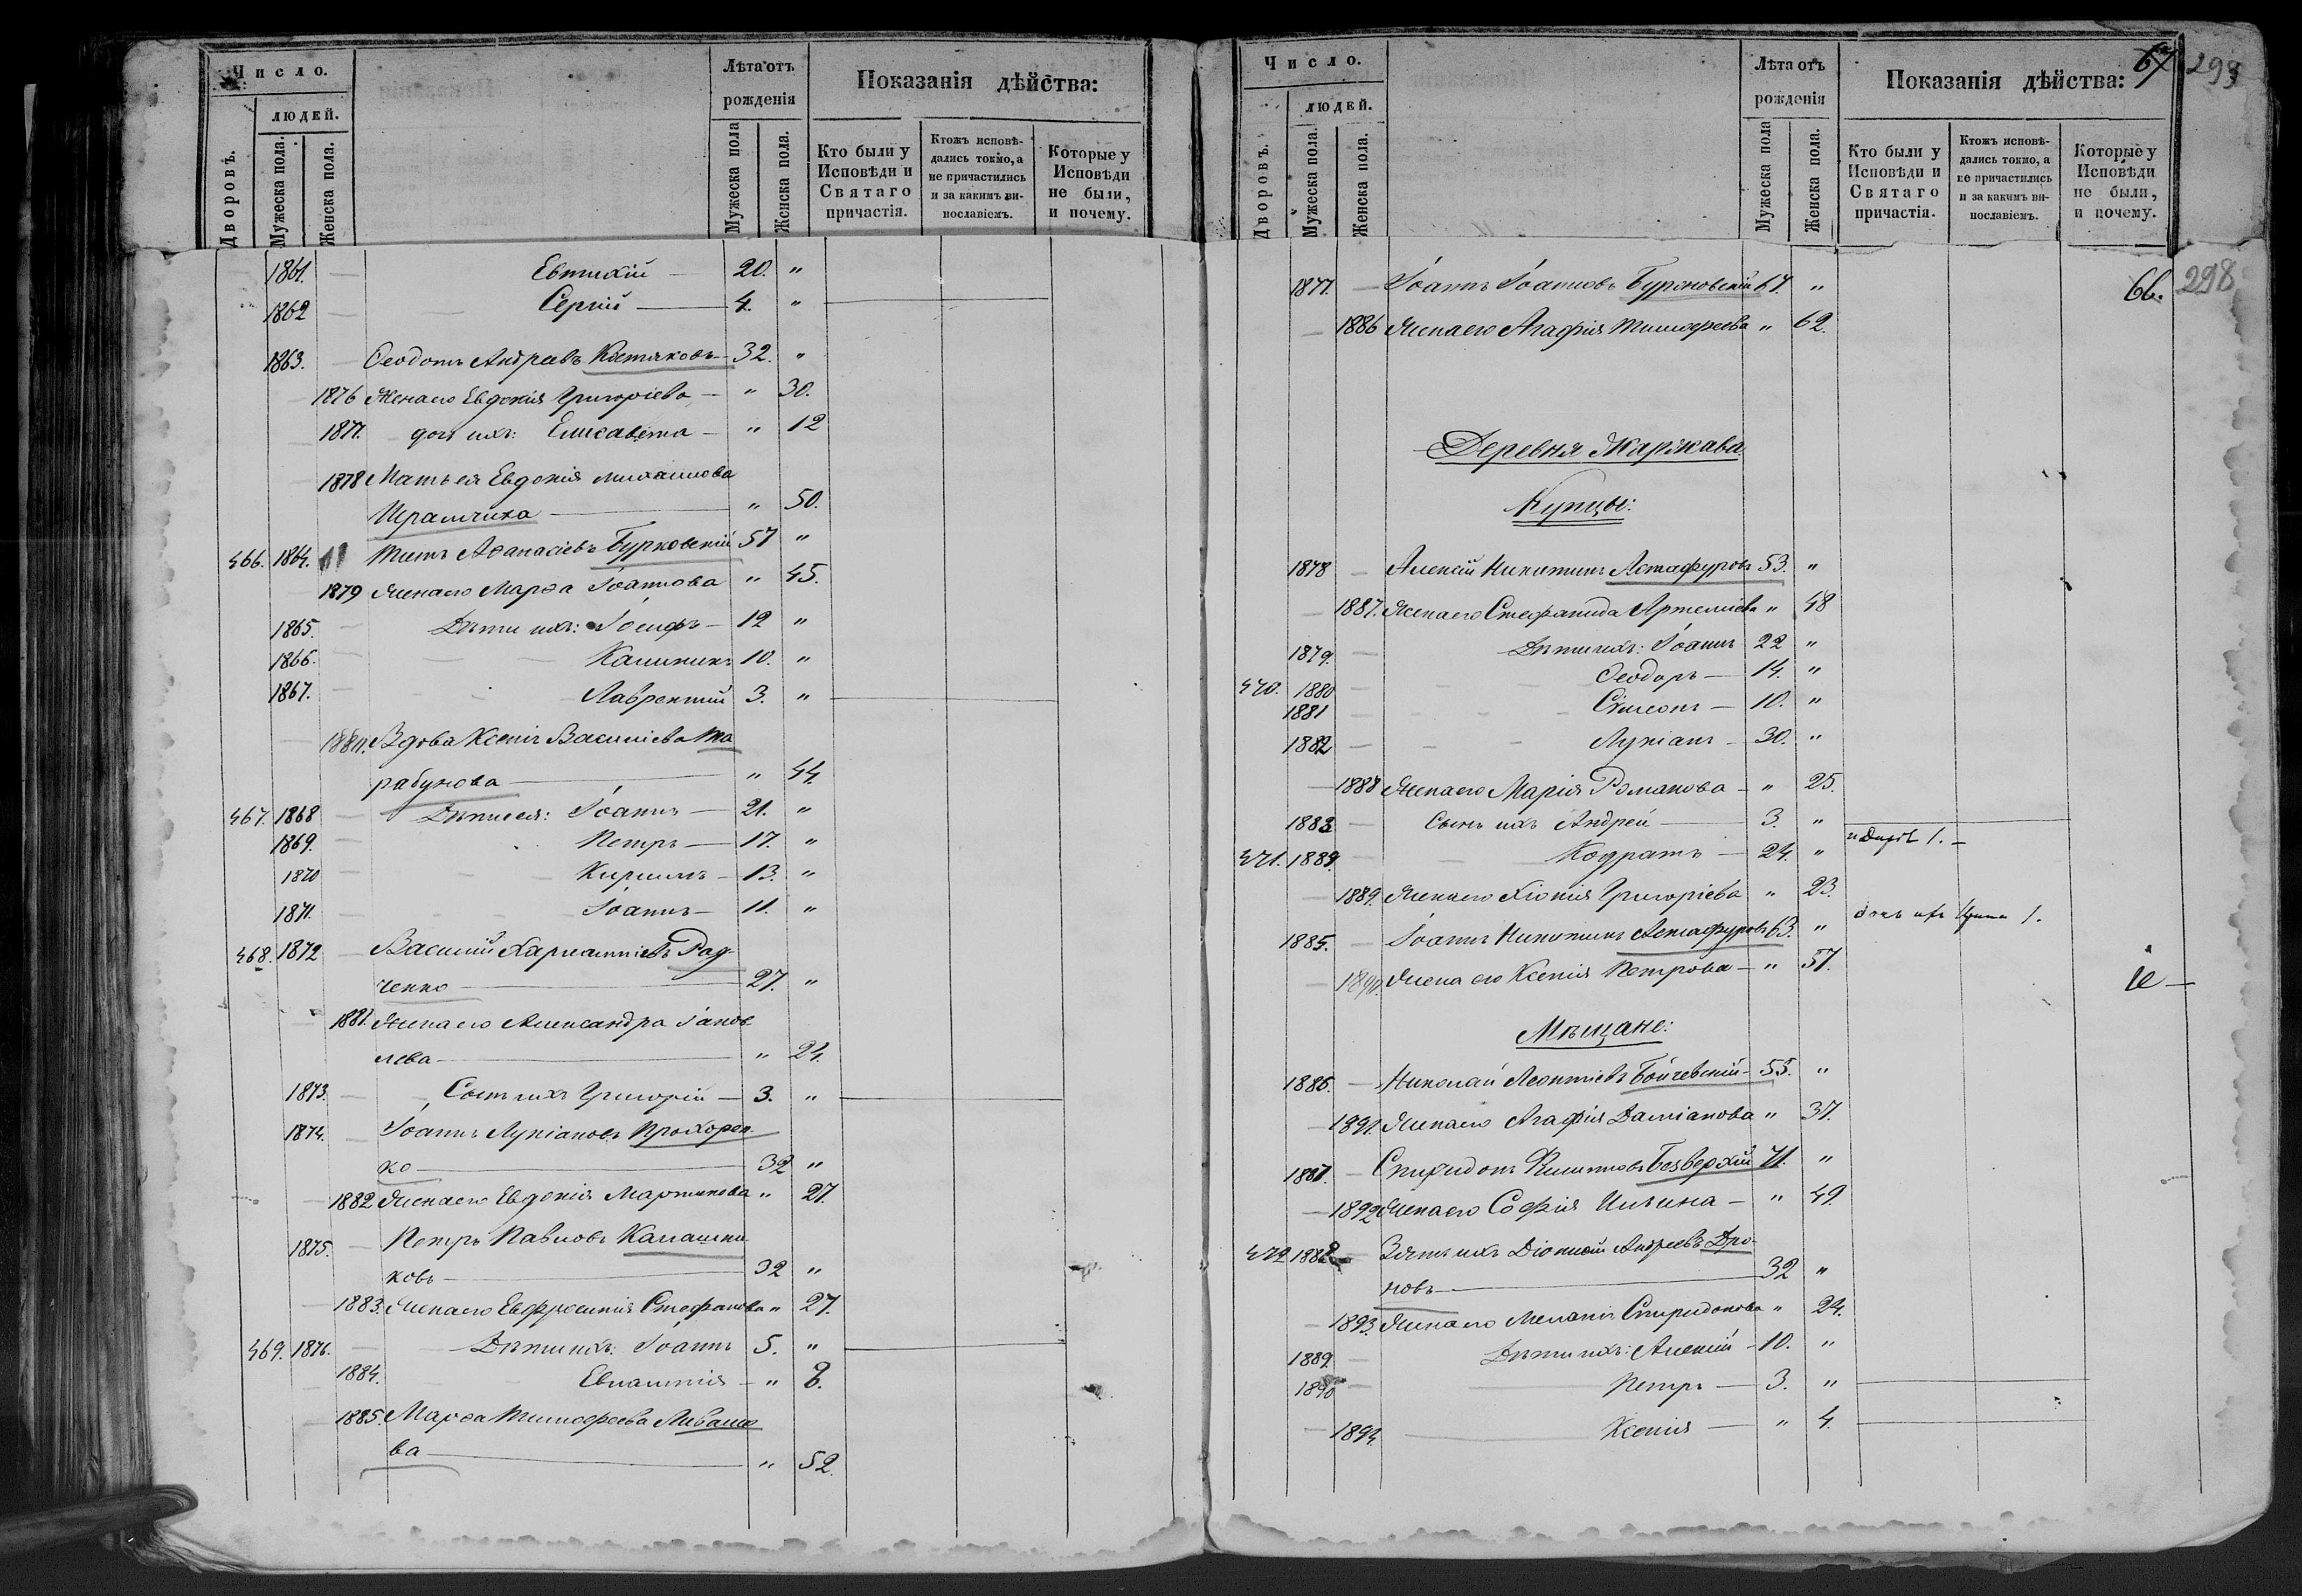 Число.
людей.
Дворовъ.
Мужеска пола.
Женска пола.
Лѣта отъ
рожденія
Мужеска пола
Женска пола.
Показанія дѣйства:
Кто были у
Исповѣди и
Святаго
причастія.
Ктожъ исповѣ-
дались токмо, а
не причастились
и за какимъ ви-
нословіемъ.
Которые у
Исповѣди
не были,
и почему.
1861. Евтихій 20. "
1862 Сергій 4. "
1863. Ѳеодотъ Андреевъ 32. "
1876 Жена его Евдокія Григоріева " 30.
1877. дочь ихъ: Елисавета " 12
1878 Мать ея Евдокія Михаилова
" 50.
466. 1864. Титъ Аѳанасіевъ Бурковскій 57 "
1879 Жена его Марѳа Іоаннова " 45.
1865. Дѣти ихъ: Іосифъ 12 "
1866. Калиникъ 10. "
1867. Лаврентій 3. "
1880. Вдова Ксенія Василіева Та
рабунова " 44.
467. 1868 Дѣти ея: Іоаннъ 21. "
1869. Петръ 17. "
1870 Кириллъ 13. "
1871. Іоаннъ 11. "
468. 1872 Василій Харлампіевъ Рад-
ченко 27. "
1881. Жена его Александра Іаков
лева " 24.
1873. Сынъ ихъ Григорій 3. "
1874. Іоаннъ Лукіановъ Прохорен
ко 32 "
1882 Жена его Евдокія Мартинова " 27.
1875. Петръ Павловъ Калашни
ковъ 32 "
1883. Жена его Евфросинія Стефанова " 27.
469. 1876. Дѣти ихъ: Іоаннъ 5. "
1884. Евлампія " 8.
1885. Марѳа Тимофеева Ливашо
ва " 52.
Число.
людей.
Дворовъ.
Мужеска пола.
Женска пола.
Лѣта отъ
рожденія
Мужеска пола
Женска пола.
Показанія дѣйства: 67 293
Кто были у
Исповѣди и
Святаго
причастія.
Ктожъ исповѣ-
дались токмо, а
не причастились
и за какимъ ви-
нословіемъ.
Которые у
Исповѣди
не были,
и почему.
66. 298
1877. Іоаннъ Іоанновъ 67. "
1886 Жена его Агафія Тимофеева " 62.
Деревня Жаржава
Купцы:
1878 Алексій Никитинъ Астафуровъ 53. "
1887. Жена его Стефанида Артеміева " 48
1879. Дѣти ихъ: Іоаннъ 22 "
470. 1880 Ѳеодоръ 14. "
1881 Сѵмеонъ 10. "
1882 Лукіанъ 30. "
1888 Жена его Марія Романова " 25.
1883 Сынъ ихъ Андрей 3. "
471. Кодратъ 24. "
1889. Жена его Хіонія Григоріева " 23.
1885. Іоаннъ Никитинъ Астафуровъ 63. "
1890. Жена его Ксенія Петрова " 57.
Мѣщане:
1886. Николай Леонтіевъ Бойчевскій 55. "
1891. Жена его Агафія Даміанова " 37.
1887. Спиридонъ Филиповъ Безверхій 71. "
1892 Жена его Софія Ильина " 49.
472 1888 Зять ихъ Діонисій Андреевъ Дро-
новъ 32 "
1893. Жена его Меланія Спиридонова " 24.
1889. Дѣти ихъ: Алексій 10. "
1890 Петръ 3. "
1894. Ксенія " 4.